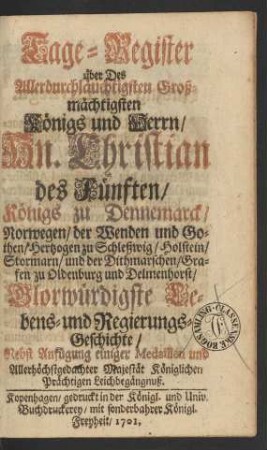 Tage-Register
über Des
Allerdurchläuchtigsten Groß-
mächtigsten
Königs und Herrn/
Hn. Christian
des Fünften/
Königs zu Dennemarck/
Norwegen/ der Wenden und Go-
then/ Hertzogen zu Schleßwig/ Holstein/
Stormarn/ und der Dithmarschen/ Gra-
fen zu Oldenburg und Delmenhorst/
Glorwürdigste Le-
bens- und Regierungs-
Geschichte/
Nebst Anfügung einiger Medaillen und
Allerhöchstgedachter Majestät Königlichen
Prächtigen Leichbegängnuß.
Kopenhagen/ gedruckt in der Königl. und Univ.
Buchdruckerey/ mit sonderbahrer Königl.
Freyheit/ 1701.